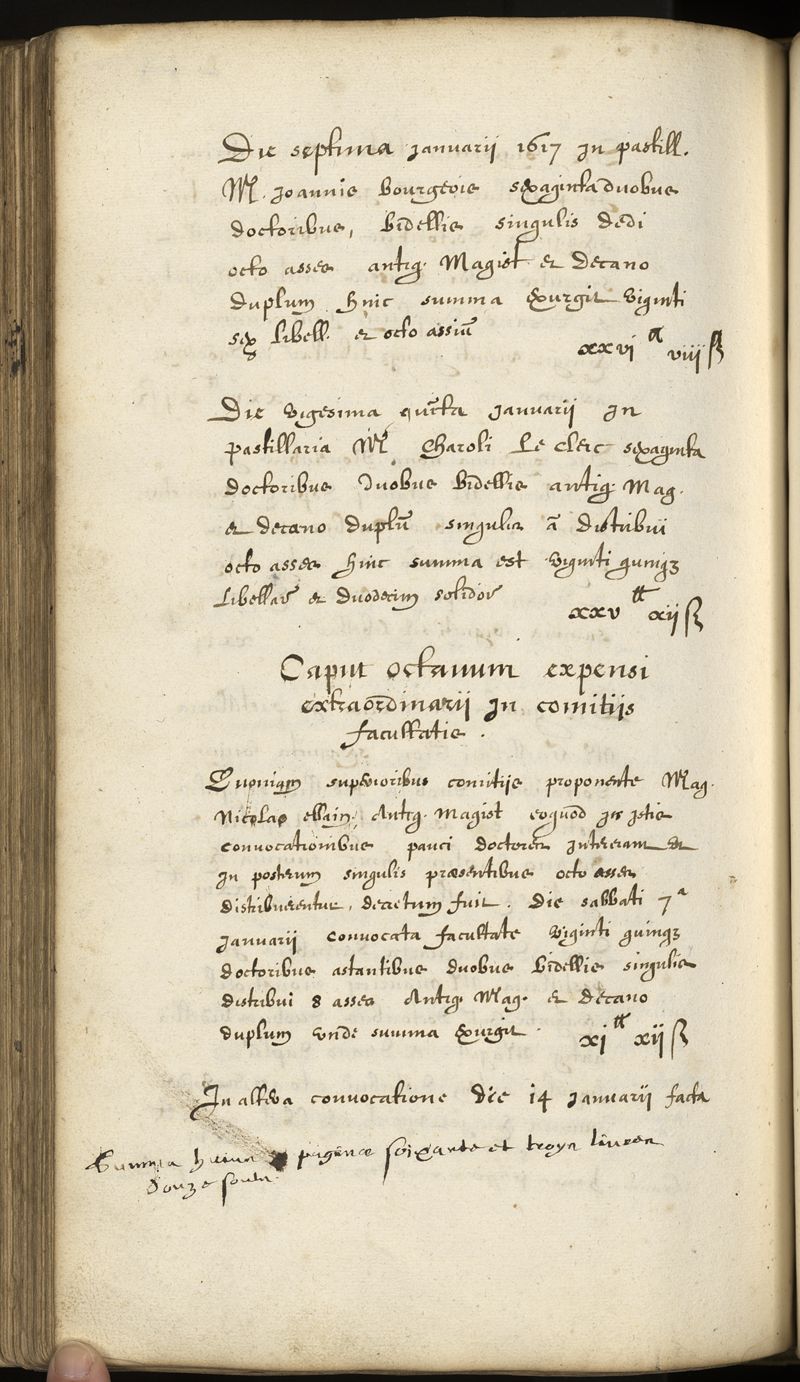 Die septima Januarii 1617 In pastill.
M. Joannis Bourgeois sexaginta duobus
doctoribus, bidellis singulis dedi
octo asses antiq. Magist et Decano
duplum hinc summa exurgit viginti
sex libell. et octo assiū
xxvi ₶ viij ß
Die vigesima quarta Januarii In
pastillaria M. Charoli Le Clerc sexaginta
doctoribus duobus bidellis antiq. Mag.
et decano duplū singulis ā distribui
octo asses hinc summa est viginti quinq3
libellar et duodecim solidor
xxv ₶ xij ß
Caput octavum expensi
extraordinarii In comitiis
facultatis.
Quoniam superioribus comitiis proponente Mag.
Nicolao ellain, Antiq. Magist eoquod In istis
convocationibus pauci doctores intererant et
In posterum singulis præsentibus octo asses
distribuerentur, decretum fuit. Die sabbati 7ᵃ
Januarii convocata facultate viginti quinq3
doctoribus astantibus duobus bidellis singulis
distribui 8 asses Antiq. Mag. et decano
duplum unde summa exurgit.
xj ₶ xij ß
In altera convocatione die 14 Januarii facta
Summa huius paginæ soixante et troys livres
douze soulz